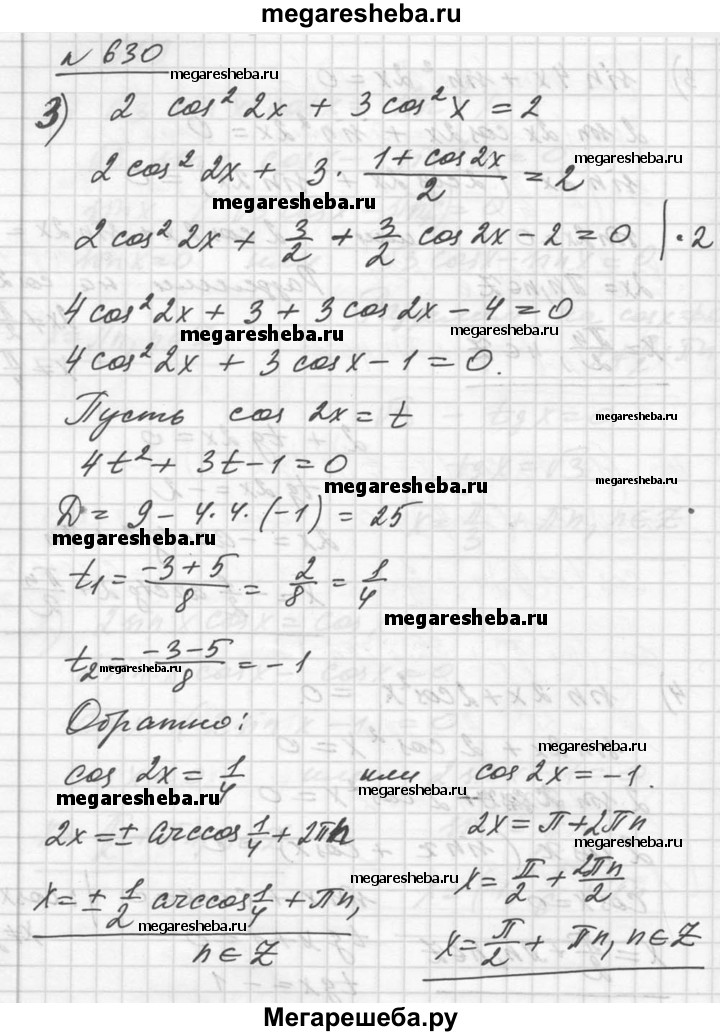 megaresheba.ru
№ 630
megaresheba.ru
3) 2 cos² 2x + 3 cos² x = 2
2 cos² 2x + 3 · (1 + cos 2x)/2 = 2
megaresheba.ru
megaresheba.ru
2 cos² 2x + 3/2 + 3/2 cos 2x − 2 = 0 | · 2
4 cos² 2x + 3 + 3 cos 2x − 4 = 0
megaresheba.ru
megaresheba.ru
4 cos² 2x + 3 cos x − 1 = 0.
Пусть cos 2x = t
megaresheba.ru
4t² + 3t − 1 = 0
megaresheba.ru
megaresheba.ru
D = 9 − 4 · 4 · (−1) = 25
megaresheba.ru
t₁ = (−3 + 5)/8 = 2/8 = 1/4
megaresheba.ru
t₂ = (−3 − 5)/8 = −1
megaresheba.ru
Обратно:
megaresheba.ru
cos 2x = 1/4 или cos 2x = −1.
megaresheba.ru
megaresheba.ru
2x = ± arccos 1/4 + 2πn
2x = π + 2πn
megaresheba.ru
megaresheba.ru
x = π/2 + 2πn/2
x = ± 1/2 arccos 1/4 + πn,
megaresheba.ru
n ∈ Z
x = π/2 + πn, n ∈ Z
megaresheba.ru
Мегарешеба.ру